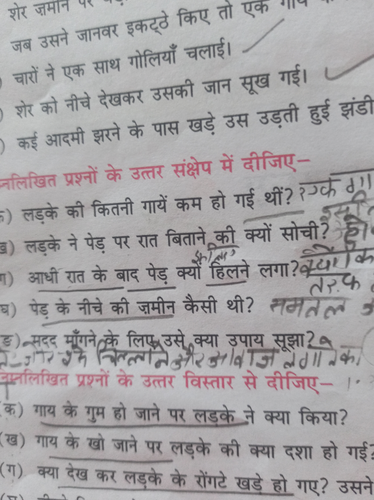 शेर ज़मीन पर
जब उसने जानवर इकट्ठे किए तो एक गाय
चारों ने एक साथ गोलियाँ चलाईं।
शेर को नीचे देखकर उसकी जान सूख गई।
कई आदमी झरने के पास खड़े उस उड़ती हुई झंडी
नलिखित प्रश्नों के उत्तर संक्षेप में दीजिए–
क) लड़के की कितनी गायें कम हो गई थीं? एक गा
ख) लड़के ने पेड़ पर रात बिताने की क्यों सोची?
ग) आधी रात के बाद पेड़ क्यों हिलने लगा? क्योंकि
घ) पेड़ के नीचे की ज़मीन कैसी थी? समतल
ङ) मदद माँगने के लिए उसे क्या उपाय सूझा?
निम्नलिखित प्रश्नों के उत्तर विस्तार से दीजिए–
(क) गाय के गुम हो जाने पर लड़के ने क्या किया?
(ख) गाय के खो जाने पर लड़के की क्या दशा हो गई?
(ग) क्या देख कर लड़के के रोंगटे खड़े हो गए? उसने